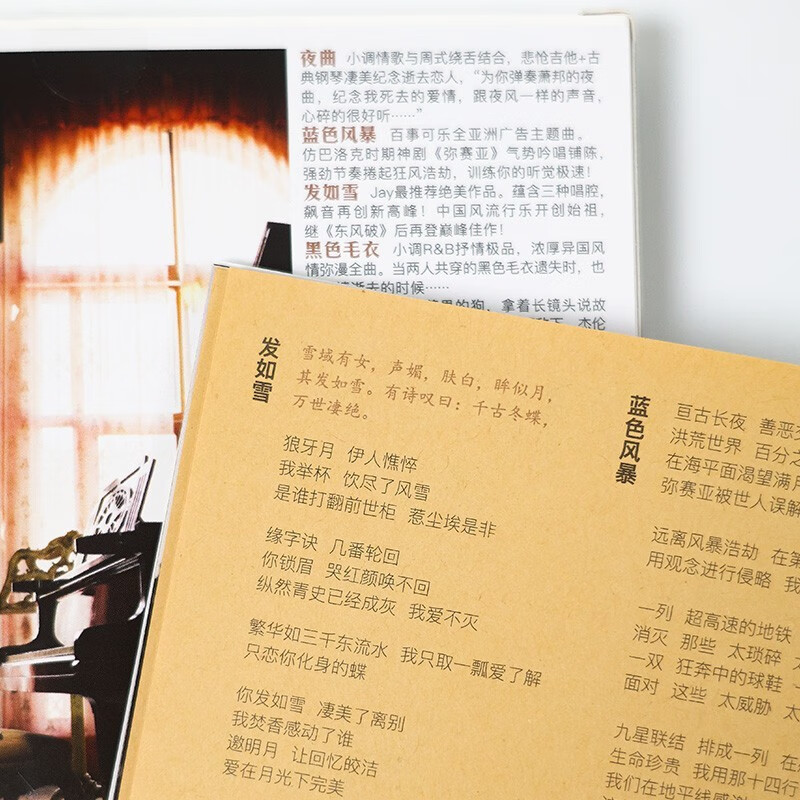 夜曲 小调情歌与周式绕舌结合，悲怆吉他+古
典钢琴凄美纪念逝去恋人，“为你弹奏萧邦的夜
曲，纪念我死去的爱情，跟夜风一样的声音、
心碎的很好听……”
蓝色风暴 百事可乐全亚洲广告主题曲。
仿巴洛克时期神剧《弥赛亚》气势吟唱铺陈，
强劲节奏捲起狂风浩劫，训练你的听觉极速！
发如雪 Jay最推荐绝美作品。蕴含三种唱腔，
飙音再创新高峰！中国风流行乐开创始祖，
继《东风破》后再登巅峰佳作！
黑色毛衣 小调R&B抒情极品，浓厚异国风
情弥漫全曲。当两人共穿的黑色毛衣遗失时，也
逝去的时候……
的狗，拿着长镜头说故
下，杰伦
发如雪
雪域有女，声媚，肤白，眸似月，
其发如雪。有诗叹曰：千古冬蝶，
万世凄绝。
狼牙月 伊人憔悴
我举杯 饮尽了风雪
是谁打翻前世柜 惹尘埃是非
缘字诀 几番轮回
你锁眉 哭红颜唤不回
纵然青史已经成灰 我爱不灭
繁华如三千东流水 我只取一瓢爱了解
只恋你化身的蝶
你发如雪 凄美了离别
我焚香感动了谁
邀明月 让回忆皎洁
爱在月光下完美
蓝色风暴
亘古长夜 善恶
洪荒世界 百分之
在海平面渴望满月
弥赛亚被世人误解
远离风暴浩劫 在第
用观念进行侵略 我
一列 超高速的地铁
消灭 那些 太琐碎 太
一双 狂奔中的球鞋
面对 这些 太威胁 太
九星联结 排成一列 在
生命珍贵 我用那十四行
我们在地平线感谢